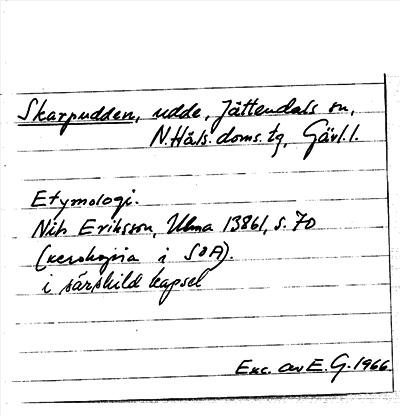 Skarpudden, udde, Jättendals sn,
N.Häls. doms. tg, Gävl.l.
Etymologi.
Nils Eriksson, Ulma 13861, s. 70
(xerokopia i SOA).
i särskild kapsel
Exc. av E. G. 1966.